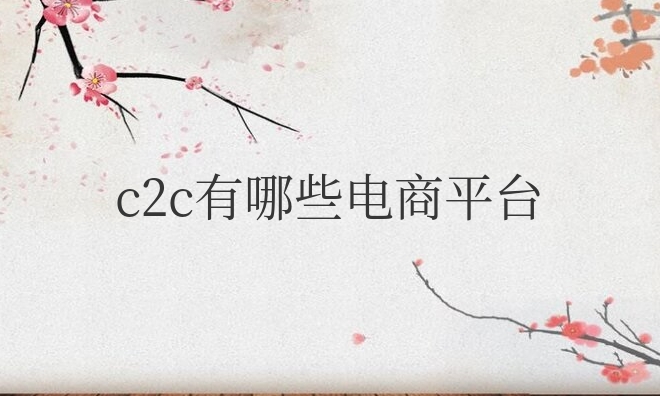 c2c有哪些电商平台